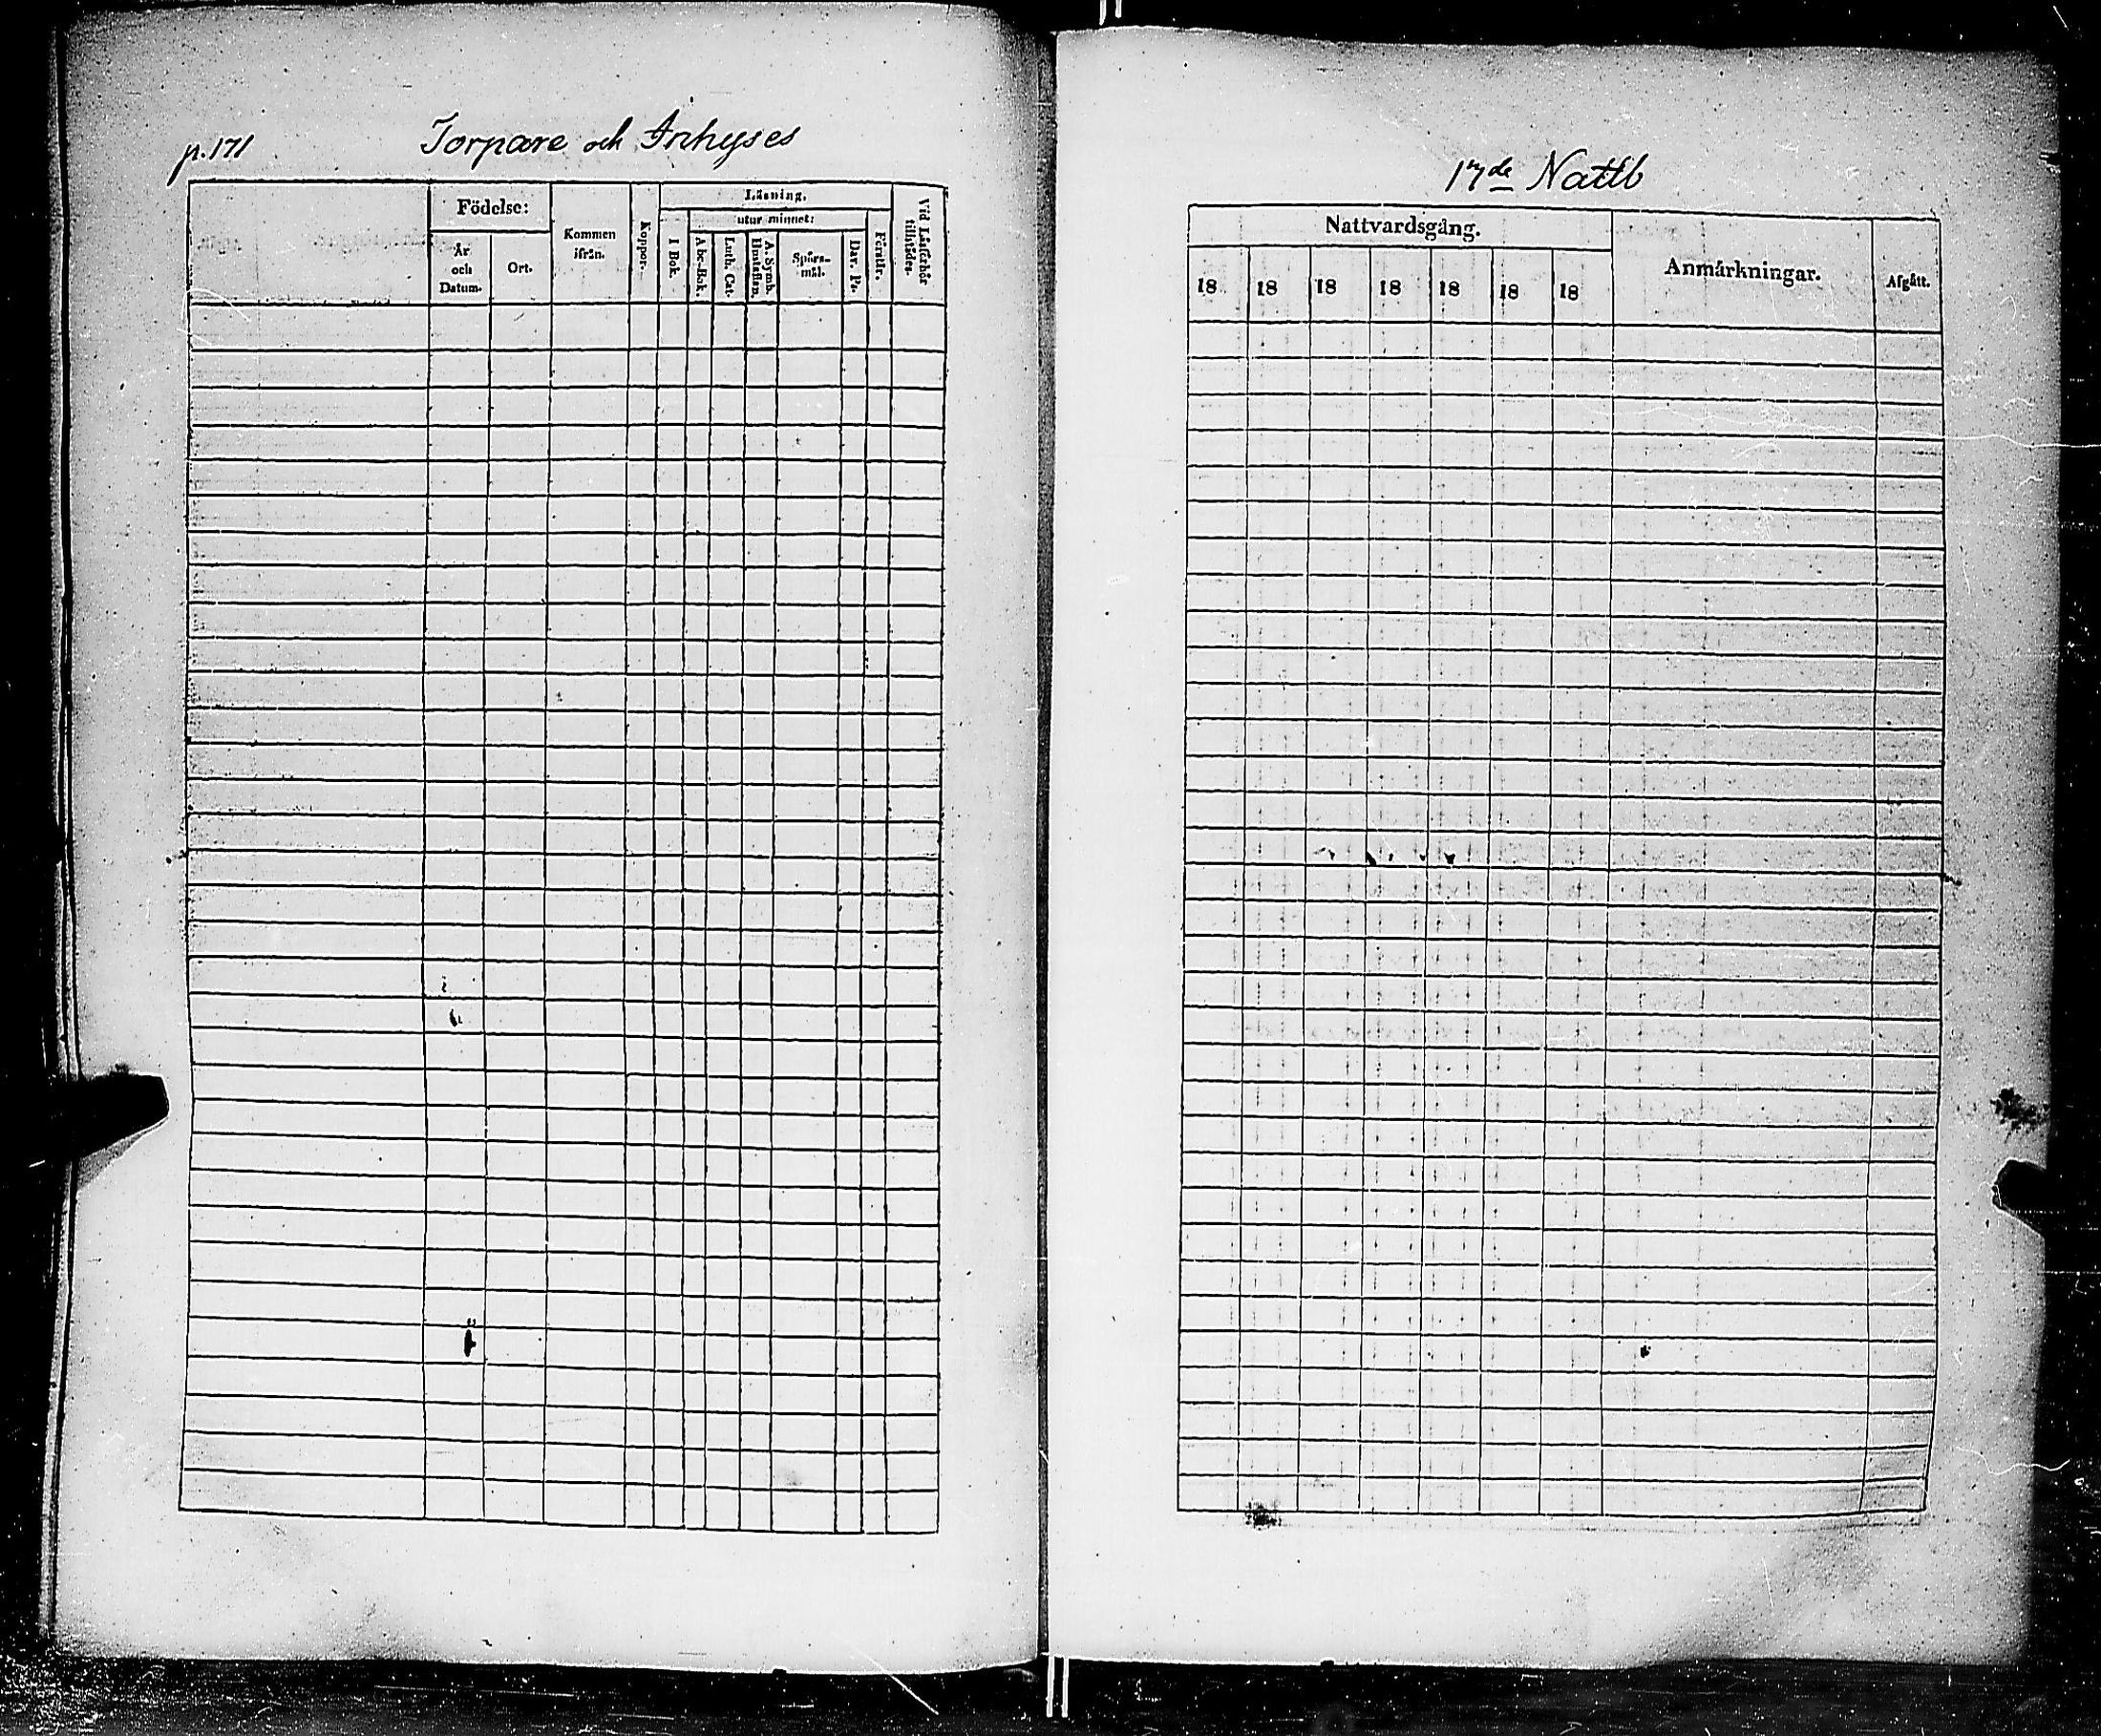 p. 171
Torpare och Inhyses
Födelse:
År
och
Datum.
Ort.
Kommen
ifrån.
Koppor.
Läsning.
utur minnet:
I Bok.
Abc-Bok.
Luth. Cat.
A. Symb.
Hustaflan.
Spörs-
mål.
Dav. Ps.
Förstår.
Vid Läsförhör
tillstådes.
17de Nattb
Nattvardsgång.
18 18 18 18 18 18 18
Anmärkningar.
Afgått.